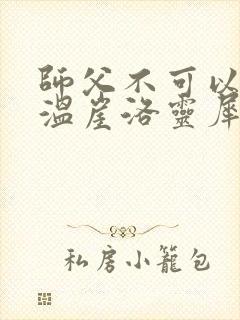 師父不可以
溫崖洛靈犀
私房小籠包